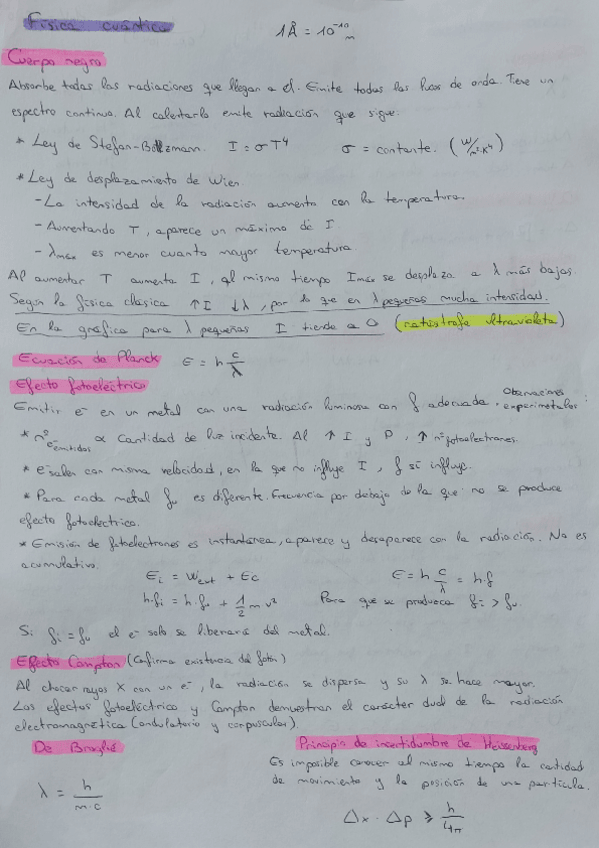 Física cuántica
1Å = 10⁻¹⁰ m
Cuerpo negro
Absorbe todas las radiaciones que llegan a el. Emite todas las de onda Tiene un
espectro continuo. Al calentarlo emite radiación que sigue:
* Ley de Stefan-Boltzmann. I = σT⁴ σ = constante. (W/m²K⁴)
* Ley de desplazamiento de Wien
- La intensidad de la radiación aumenta con la temperatura.
- Aumentando T, aparece un máximo de I
- λmax es menor cuanto mayor temperatura
Al aumentar T aumenta I, al mismo tiempo Imáx se desplaza a λ más bajas.
Según la física clásica ↑I ↓λ, por lo que en λ pequeñas mucha intensidad.
En la gráfica para λ pequeñas I tiende a 0 (catástrofe ultravioleta)
Ecuación de Planck E = h c/λ
Efecto fotoeléctrico
Emitir e⁻ en un metal con una radiación luminosa con f adecuada. Observaciones experimentales:
* nº e⁻ emitidos ∝ Cantidad de luz incidente. Al ↑ I y P, ↑ nº fotoelectrones.
* e⁻ salen con misma velocidad, en la que no influye I, f sí influye.
* Para cada metal fu es diferente. Frecuencia por debajo de la que no se produce
efecto fotoeléctrico.
* Emisión de fotoelectrones es instantánea, aparece y desaparece con la radiación. No es
acumulativo.
Ei = Wext + Ec E = h c/λ = h·f
h·fi = h·fu + 1/2 m v² Para que se produzca fi > fu
Si fi = fu el e⁻ solo se liberará del metal.
Efecto Compton (Confirma existencia del fotón)
Al chocar rayos X con un e⁻, la radiación se dispersa y su λ se hace mayor.
Los efectos fotoeléctrico y Compton demuestran el carácter dual de la radiación
electromagnética (ondulatorio y corpuscular).
De Broglie
λ = h/m·c
Principio de incertidumbre de Heissenberg
Es imposible conocer al mismo tiempo la cantidad
de movimiento y la posición de una partícula.
Δx · Δp ≥ h/4π